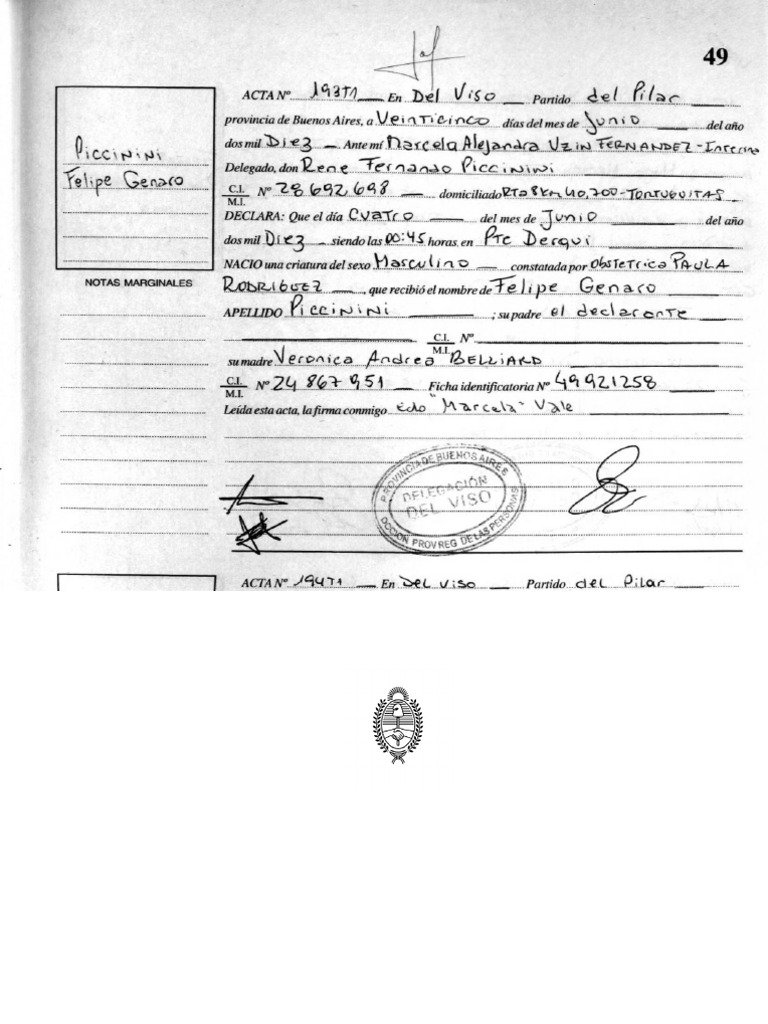 49
ACTA Nº 193T1 En Del Viso Partido del Pilar
provincia de Buenos Aires, a Veinticinco días del mes de Junio del año
dos mil Diez - Ante mí Marcela Alejandra Uzin FERNANDEZ - Interina
Delegado, don Rene Fernando Piccinini
C.I. M.I. Nº 28692698 domiciliado RTA 8 KM 40,700 - TORTUGUITAS
DECLARA: Que el día Cuatro del mes de Junio del año
dos mil Diez - siendo las 00:45 horas en Pte Derqui
NACIO una criatura del sexo Masculino constatada por Obstetrica PAULA
RODRIGUEZ, que recibió el nombre de Felipe Genaro
APELLIDO Piccinini ; su padre el declarante
C.I. M.I. Nº
su madre Veronica Andrea BELLIARD
C.I. M.I. Nº 24867951 Ficha identificatoria Nº 49921258
Leída esta acta, la firma conmigo Edo "Marcela" Vale
Piccinini
Felipe Genaro
NOTAS MARGINALES
PROVINCIA DE BUENOS AIRES
DELEGACIÓN
DEL VISO
CCION PROV REG DE LAS PERSONAS
ACTA Nº 194T1 En Del Viso Partido del Pilar